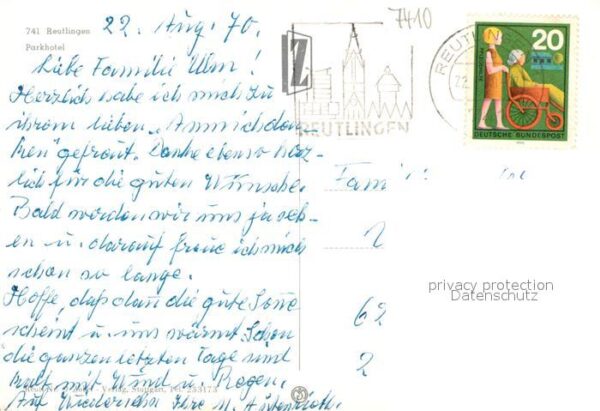 22. Aug. 70.
741 Reutlingen
Parkhotel
Liebe Familie Ulm!
Herzlich habe ich mich zu
ihrem lieben „An mich den-
ken" gefreut. Danke ebenso herz-
lich für die guten Wünsche.
Bald werden wir uns ja seh-
en u. darauf freue ich mich
schon so lange.
Hoffe, daß dan die gute Sonne
scheint u. uns wärmt. Schon
die ganzen letzten Tage sind
kalt mit Wind u. Regen.
Verlag, Stuttgart, Tel. 233173
Auf Wiedersehn Ihre M.
7410
REUTLINGEN
REUTLI
22.
20
DEUTSCHE BUNDESPOST
Fami
2
62
2
privacy protection
Datenschutz